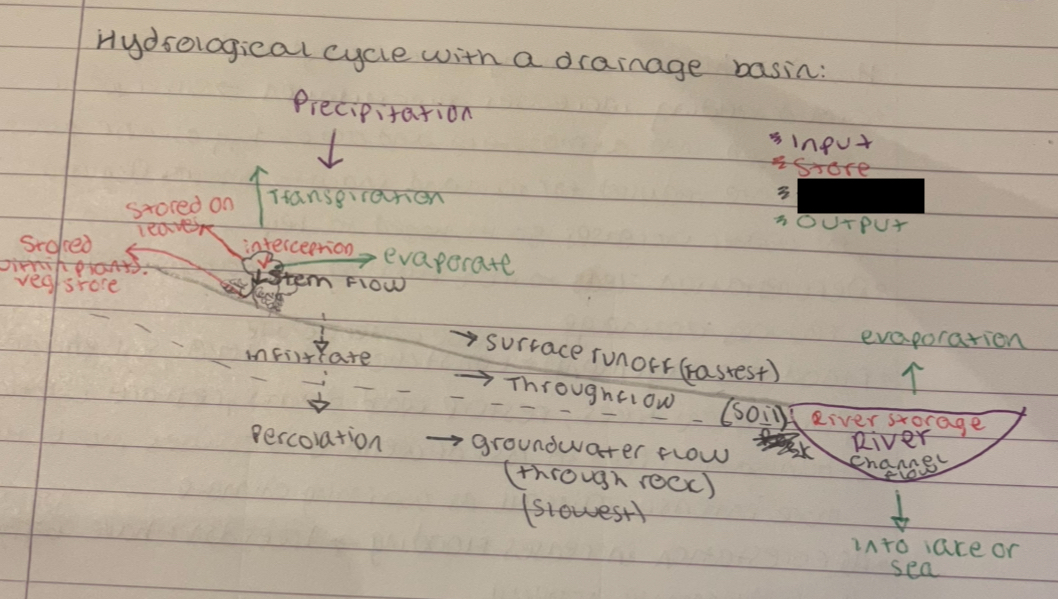 Hydrological cycle with a drainage basin:
Precipitation
* Input
* Store
*
* Output
Transpiration
stored on
leaves
interception
evaporate
Stored
plants.
veg store
Stem flow
infiltrate
surface runoff (fastest)
Throughflow
(soil)
evaporation
River storage
River
channel
flow
Percolation
groundwater flow
(through rock)
(slowest)
into lake or
sea